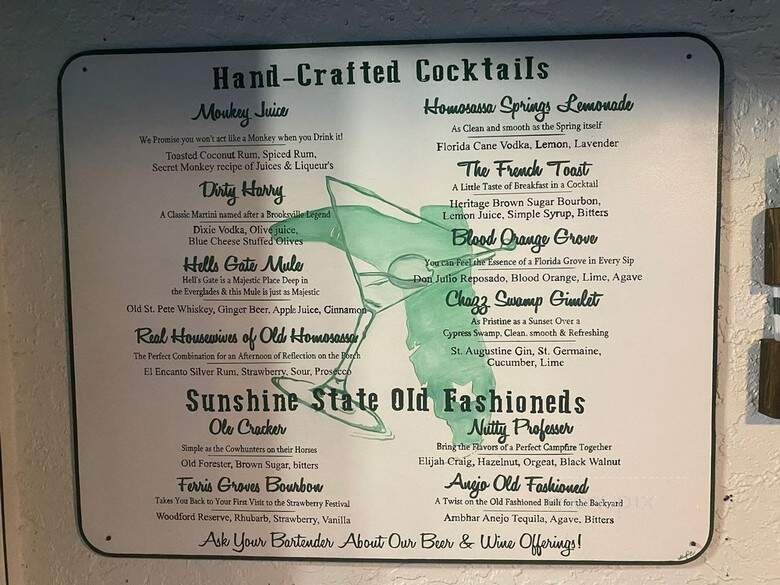 Hand-Crafted Cocktails
Monkey Juice
We Promise you won't act like a Monkey when you Drink it!
Toasted Coconut Rum, Spiced Rum,
Secret Monkey recipe of Juices & Liqueur's
Dirty Harry
A Classic Martini named after a Brooksville Legend
Dixie Vodka, Olive juice,
Blue Cheese Stuffed Olives
Hells Gate Mule
Hell's Gate is a Majestic Place Deep in
the Everglades & this Mule is just as Majestic
Old St. Pete Whiskey, Ginger Beer, Apple Juice, Cinnamon
Real Housewives of Old Homosassa
The Perfect Combination for an Afternoon of Reflection on the Porch
El Encanto Silver Rum, Strawberry, Sour, Prosecco
Homosassa Springs Lemonade
As Clean and smooth as the Spring itself
Florida Cane Vodka, Lemon, Lavender
The French Toast
A Little Taste of Breakfast in a Cocktail
Heritage Brown Sugar Bourbon,
Lemon Juice, Simple Syrup, Bitters
Blood Orange Grove
You can Feel the Essence of a Florida Grove in Every Sip
Don Julio Reposado, Blood Orange, Lime, Agave
Chazz Swamp Gimlet
As Pristine as a Sunset Over a
Cypress Swamp, Clean, smooth & Refreshing
St. Augustine Gin, St. Germaine,
Cucumber, Lime
Sunshine State Old Fashioneds
Ole Cracker
Simple as the Cowhunters on their Horses
Old Forester, Brown Sugar, bitters
Ferris Groves Bourbon
Takes You Back to Your First Visit to the Strawberry Festival
Woodford Reserve, Rhubarb, Strawberry, Vanilla
Nutty Professer
Bring the Flavors of a Perfect Campfire Together
Elijah Craig, Hazelnut, Orgeat, Black Walnut
Anejo Old Fashioned
A Twist on the Old Fashioned Built for the Backyard
Ambhar Anejo Tequila, Agave, Bitters
Ask Your Bartender About Our Beer & Wine Offerings!